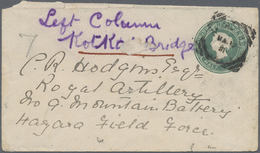 Left Column
Kotkai Bridge
C. R. Hodgins Esqre
Royal Artillery
No 9 Mountain Battery
Hazara Field Force.